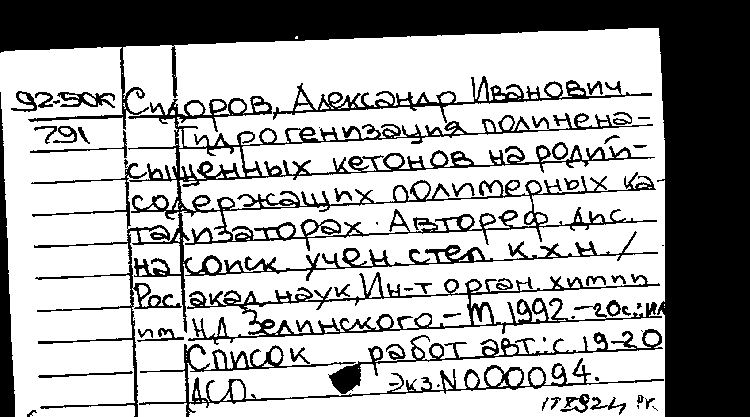 92-50К Сидоров, Александр Иванович.
791 Гидрогенизация полинена-
сыщенных кетонов на родий-
содержащих полимерных ка-
тализаторах. Автореф. дис.
на соиск. учен. степ. к.х.н. /
Рос. акад. наук, Ин-т орган. химии
им. Н.Д. Зелинского. - М, 1992. - 20с.: ил
Список работ авт.: с. 19-20
ДСП. Экз. N000094.